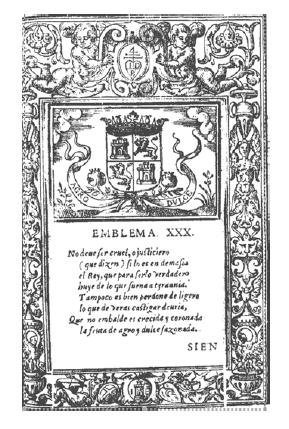 AGRO DULCE
EMBLEMA. XXX.
No deue ser cruel, o justiciero
(que dizen) si lo es en demasia
el Rey, que para serlo verdadero
huye de lo que suena a tyrannia.
Tampoco es bien perdone de ligero
lo que de veras castigar deuria,
Que no embalde es crecida y coronada
la fruta de agro y dulce sazonada.
SIEN